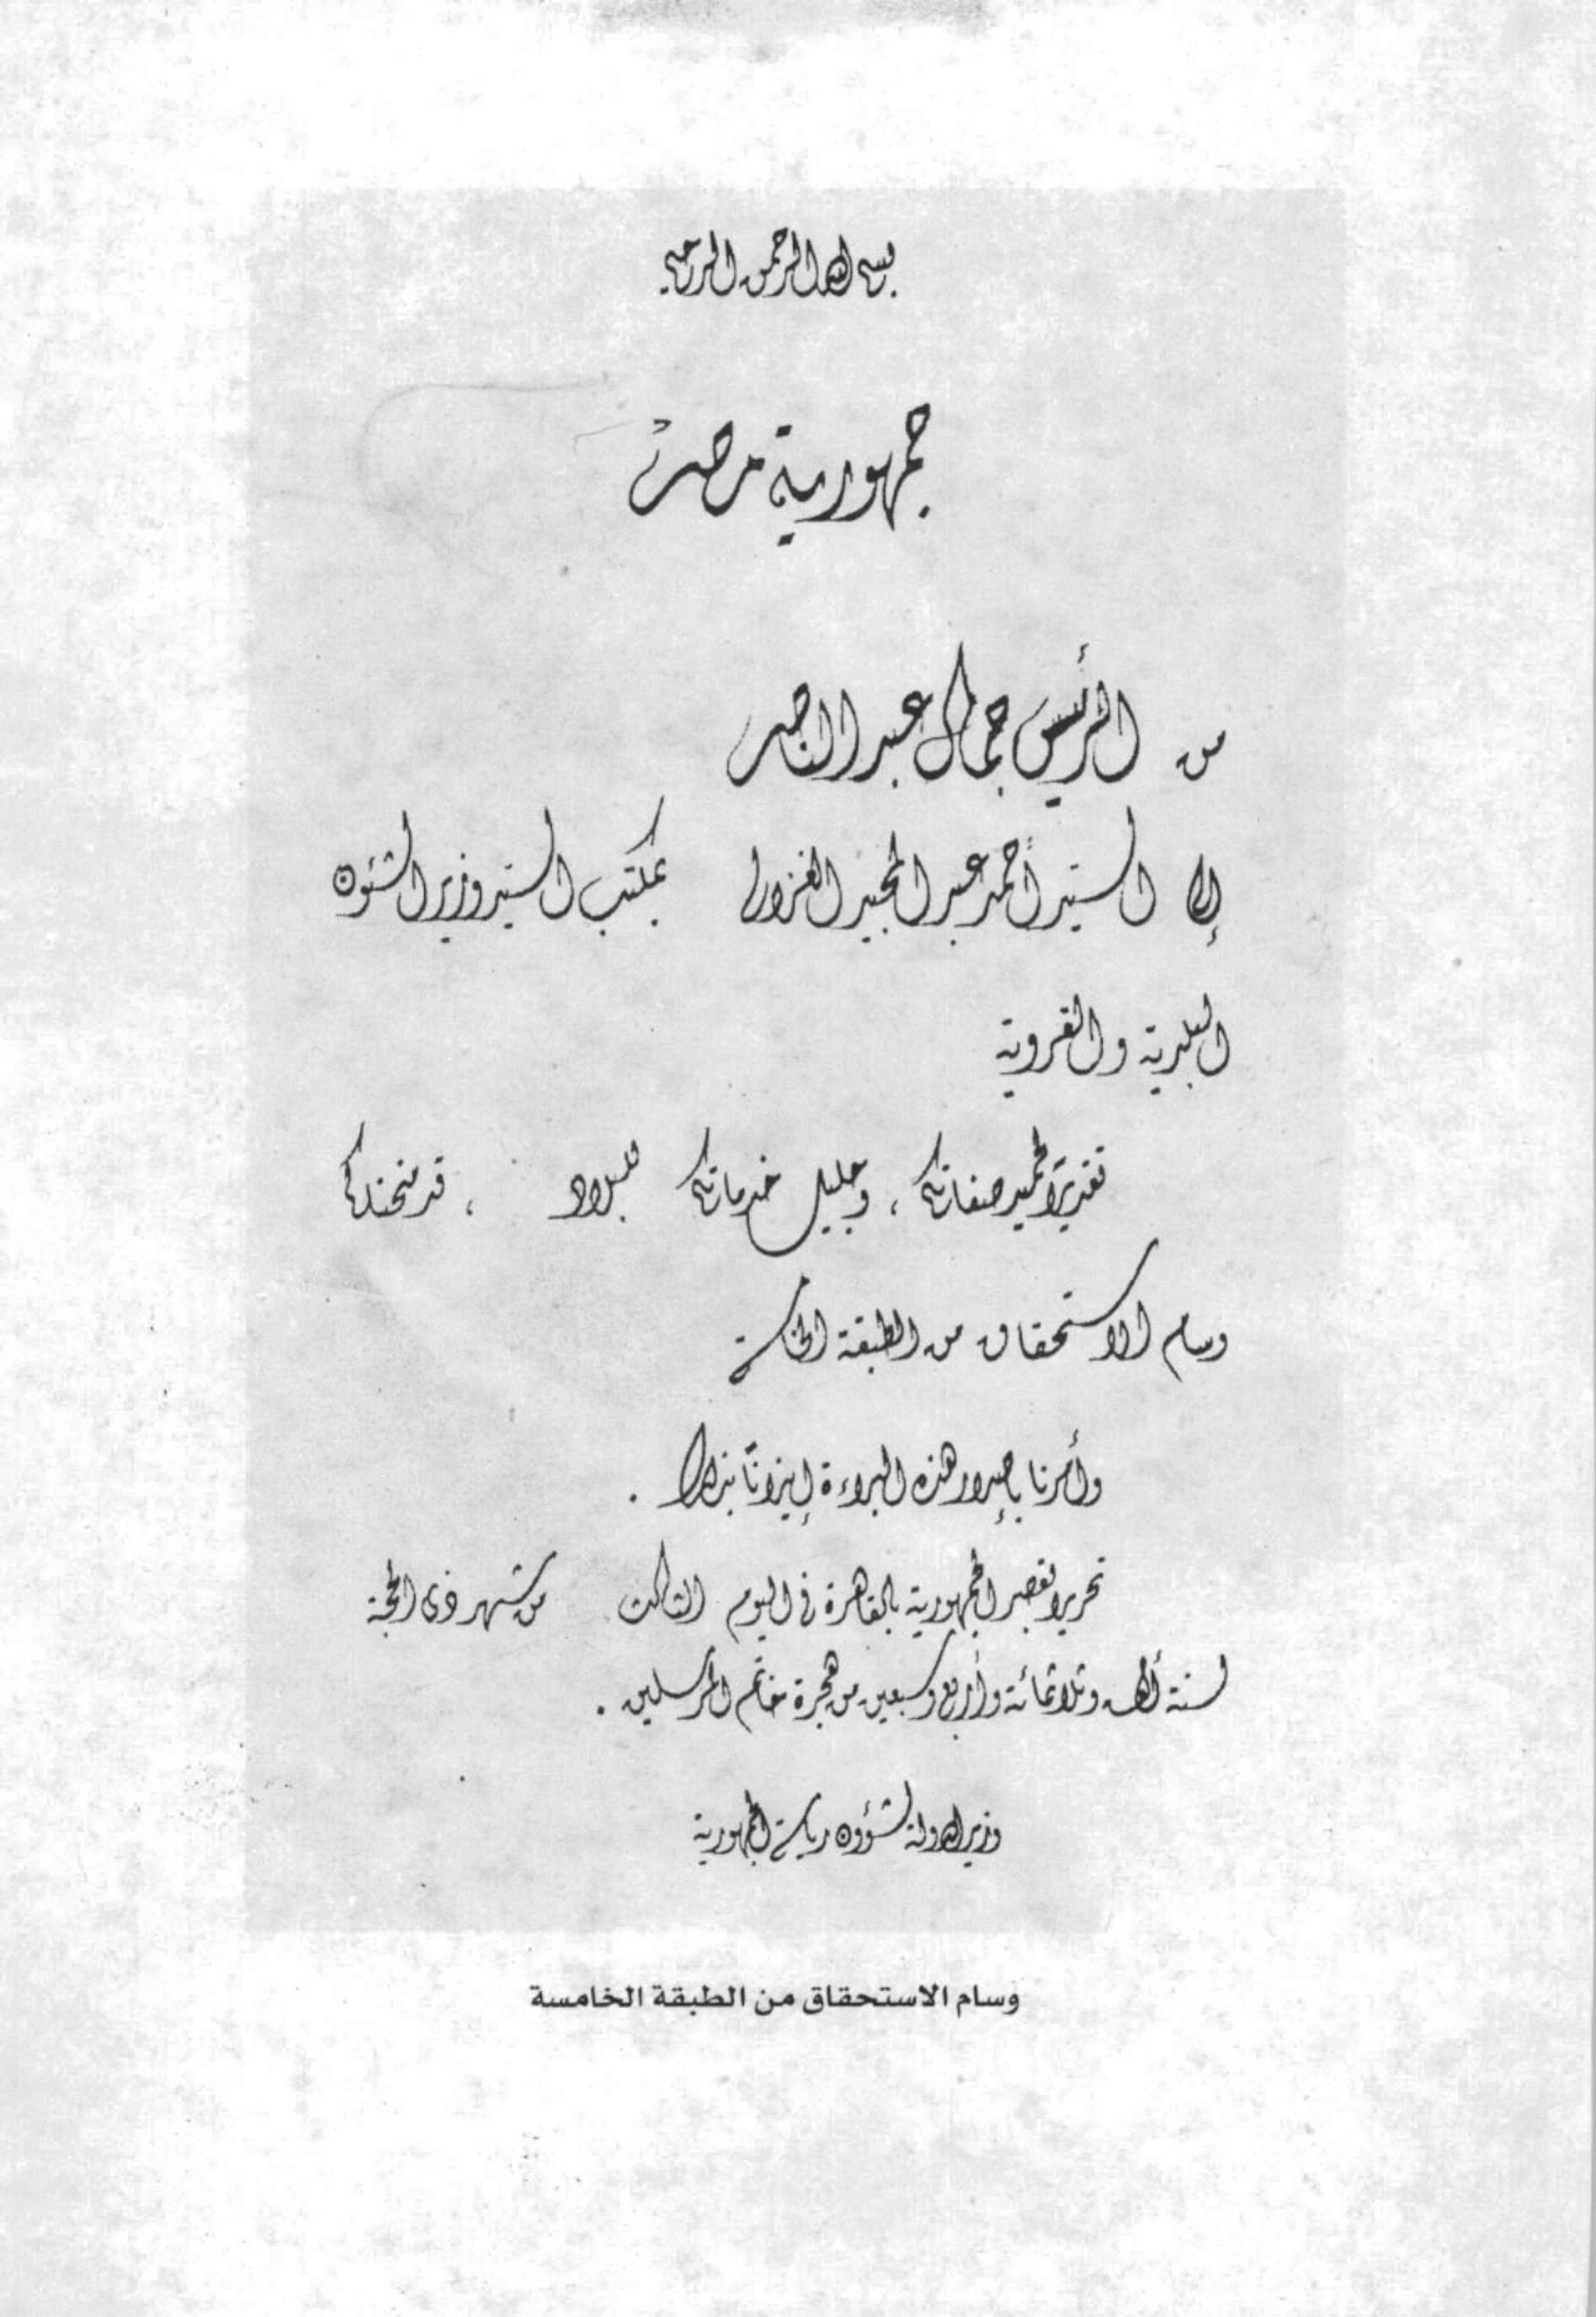 بسم الله الرحمن الرحيم
جمهورية مصر
من الرئيس جمال عبد الناصر
إلى السيد أحمد عبد المجيد الغزولى بمكتب السيد وزير الشئون
البلدية والقروية
تقديرًا لحميد صفاتكم ، وجليل خدماتكم للبلاد ، قد منحناكم
وسام الاستحقاق من الطبقة الخامسة
وأمرنا بإصدار هذه البراءة إيذانًا بذلك .
تحريرا بقصر الجمهورية بالقاهرة فى اليوم الثالث من شهر ذى الحجة
لسنة ألف وثلاثمائة وأربع وسبعين من هجرة خاتم المرسلين .
وزير الدولة لشؤون رياسة الجمهورية
وسام الاستحقاق من الطبقة الخامسة